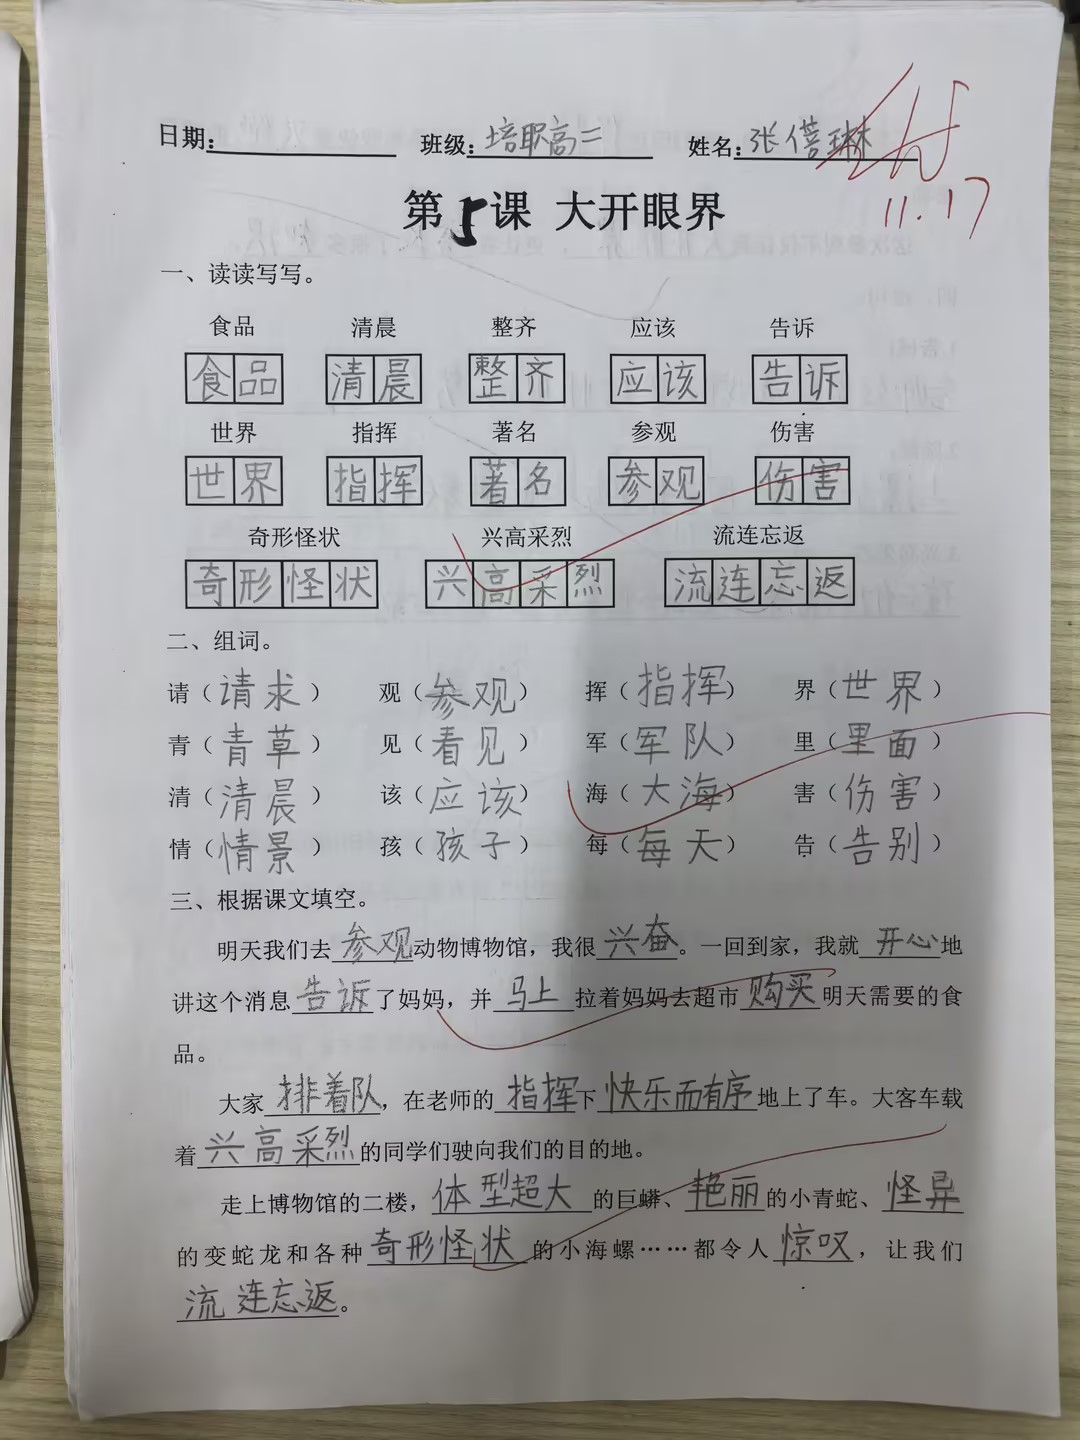 日期: 班级:培职高二 姓名:张倍琳
11.17
第5课 大开眼界
一、读读写写。
食品 清晨 整齐 应该 告诉
食品 清晨 整齐 应该 告诉
世界 指挥 著名 参观 伤害
世界 指挥 著名 参观 伤害
奇形怪状 兴高采烈 流连忘返
奇形怪状 兴高采烈 流连忘返
二、组词。
请（请求） 观（参观） 挥（指挥） 界（世界）
青（青草） 见（看见） 军（军队） 里（里面）
清（清晨） 该（应该） 海（大海） 害（伤害）
情（情景） 孩（孩子） 每（每天） 告（告别）
三、根据课文填空。
明天我们去参观动物博物馆，我很兴奋。一回到家，我就开心地
讲这个消息告诉了妈妈，并马上拉着妈妈去超市购买明天需要的食
品。
大家排着队，在老师的指挥下快乐而有序地上了车。大客车载
着兴高采烈的同学们驶向我们的目的地。
走上博物馆的二楼，体型超大的巨蟒、艳丽的小青蛇、怪异
的变蛇龙和各种奇形怪状的小海螺……都令人惊叹，让我们
流连忘返。